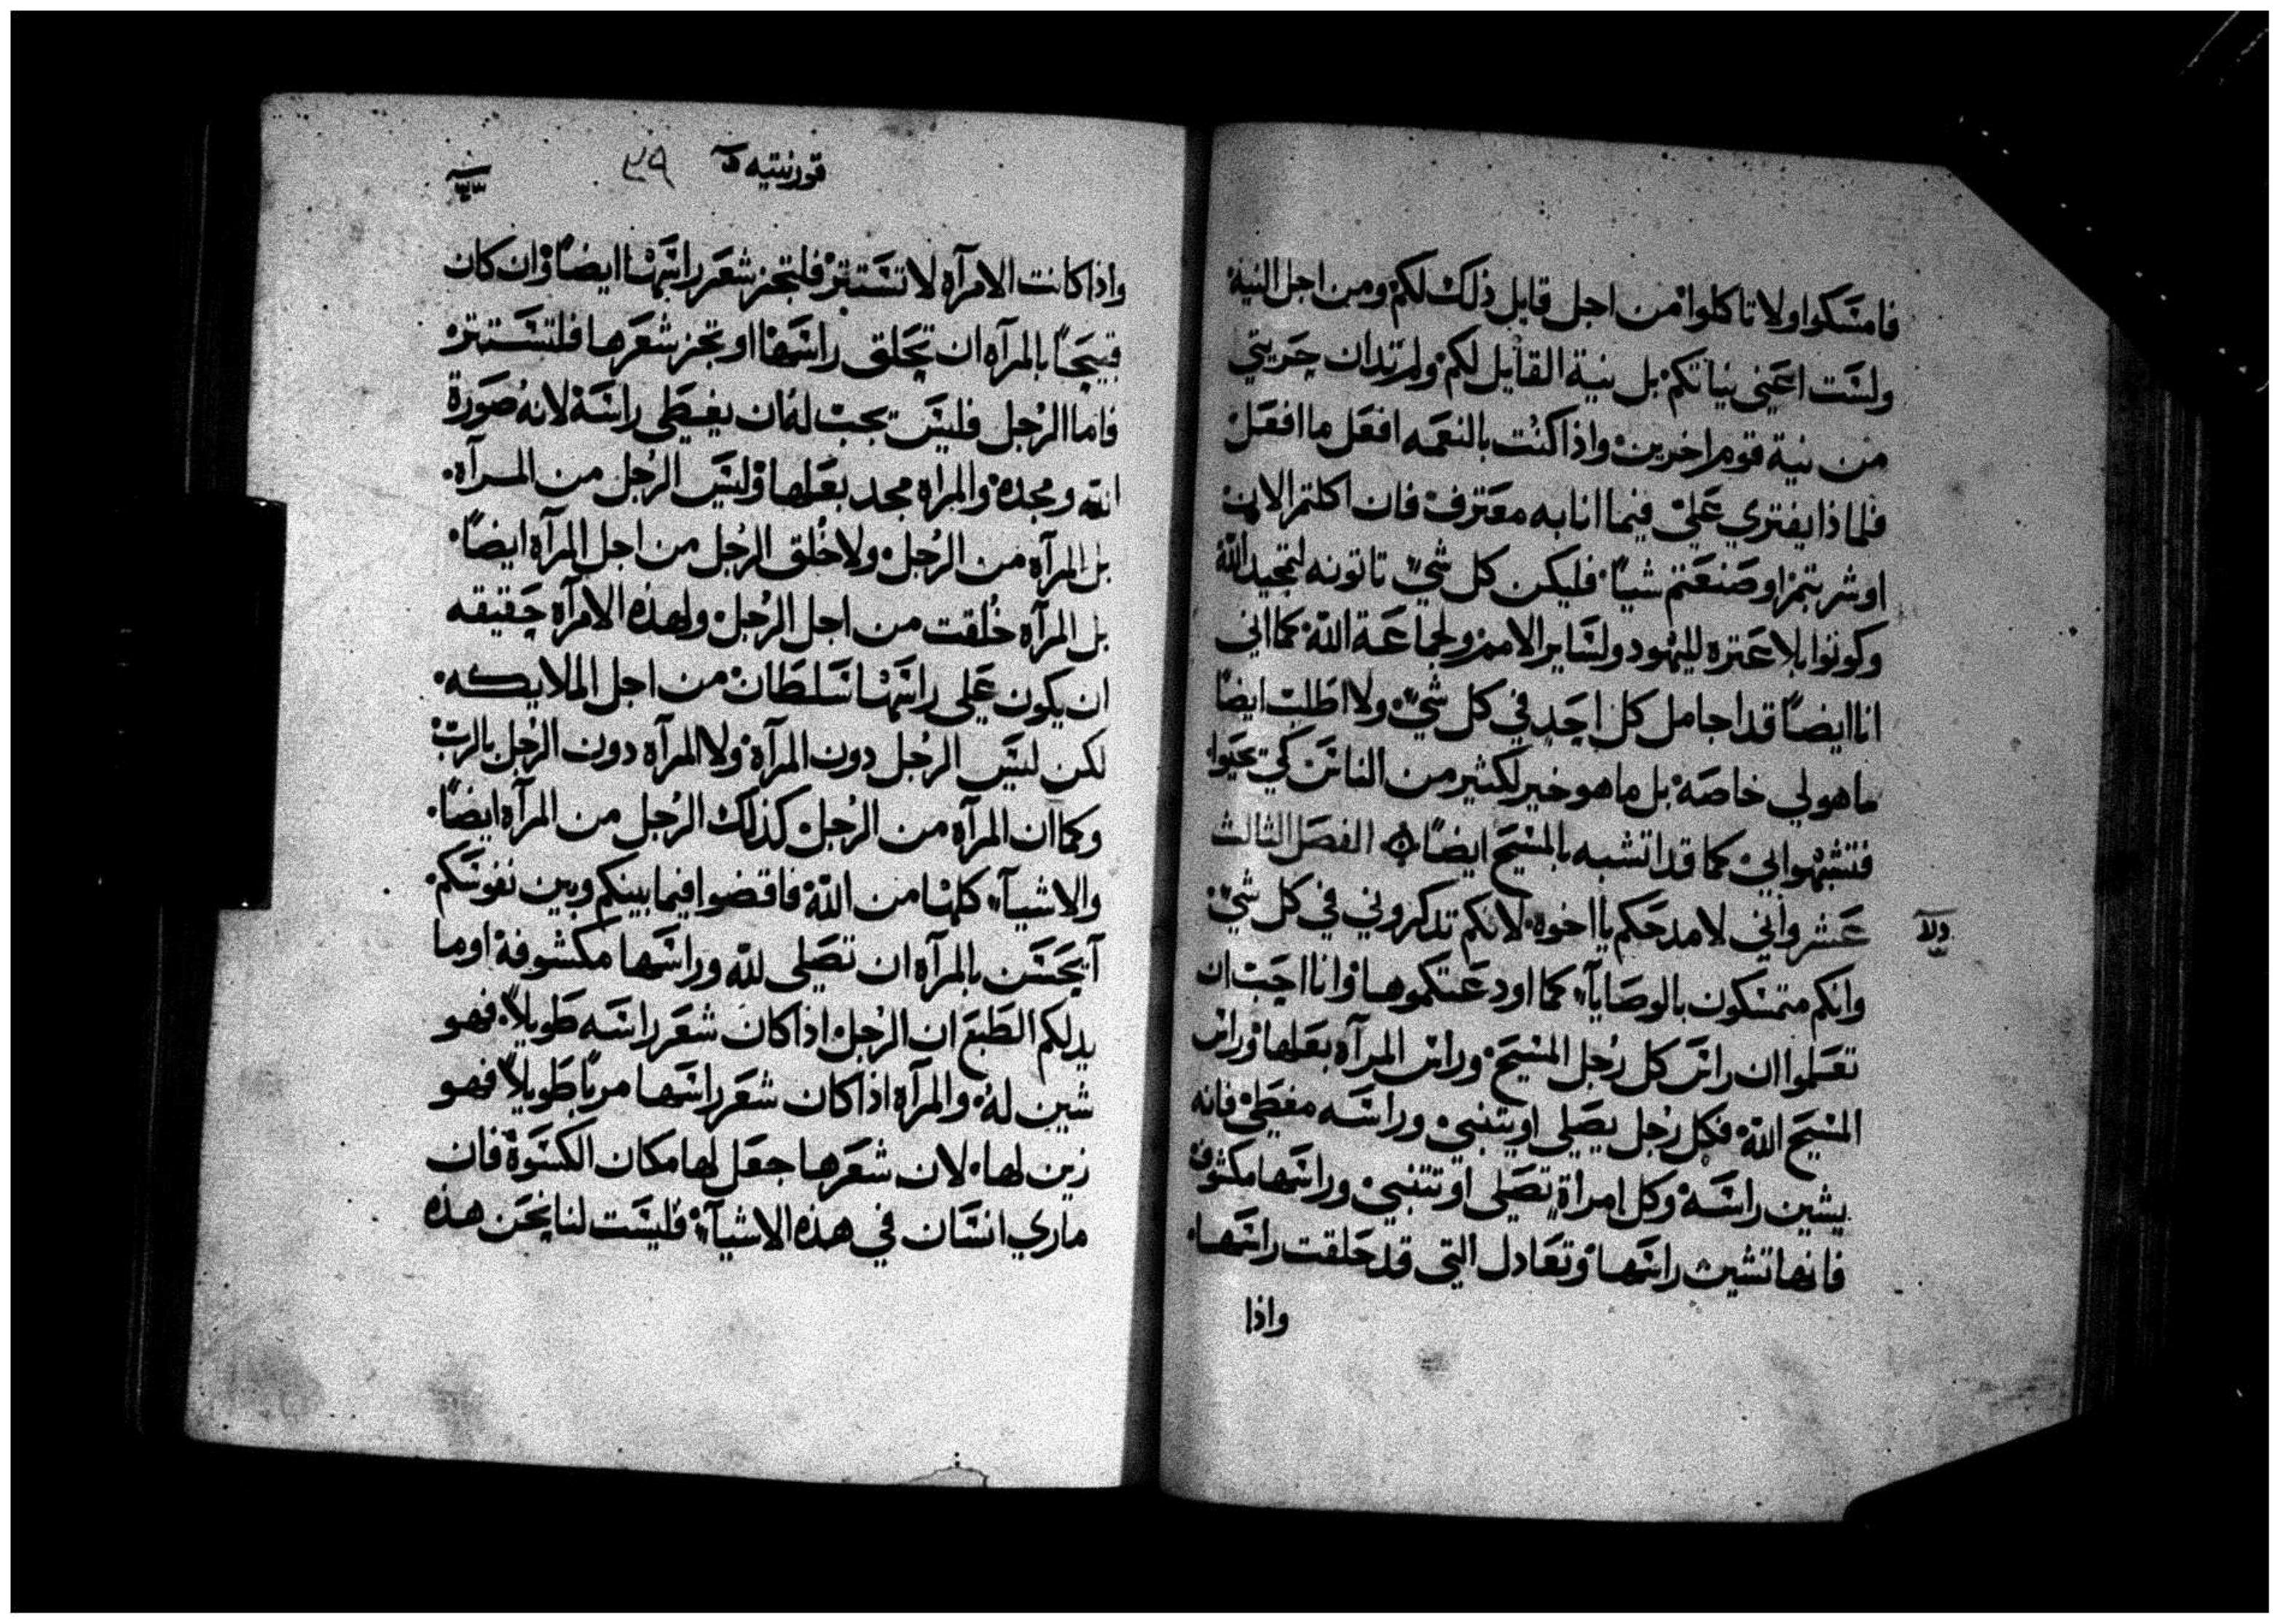 فامسكوا ولا تاكلوا من اجل قايل ذلك لكم ومن اجل النية
ولست اعني نياتكم بل نية القايل لكم ولم تدان حريتي
من نية قوم اخرين واذا كنت بالنعمه افعل ما افعل
فلماذا يفتري علي فيما انا به معترف فان اكلتم الان
او شربتم او صنعتم شيا فليكن كل شي تاتونه لتمجيد الله
وكونوا بلا عثره لليهود ولساير الامم ولجماعة الله كما اني
انا ايضا قد اجامل كل احد في كل شي ولا اطلب ايضا
ما هو لي خاصه بل ما هو خير لكثير من الناس كي يحيوا
فتشبهوا بي كما قد اتشبه بالمسيح ايضا الفصل الثالث
عشر واني لامدحكم يا اخوه لانكم تذكروني في كل شي
وانكم متمسكون بالوصايآ كما اودعتكموها وانا احب ان
تعلموا ان راس كل رجل المسيح وراس المرآه بعلها وراس
المسيح الله فكل رجل يصلي او يتنبي وراسه مغطي فانه
يشين راسه وكل امراة تصلي او تتنبي وراسها مكشوف
فانها تشين راسها وتعادل التي قد حلقت راسها
واذا
قورنتيه
٣٩
واذا كانت الامرآه لا تستتر فلتجز شعر راسها ايضا وان كان
قبيحا بالمرآه ان تحلق راسها او تجز شعرها فلتستتر
فاما الرجل فليس يجب له ان يغطي راسه لانه صورة
الله ومجده والمراه مجد بعلها وليس الرجل من المرآه
بل المرآه من الرجل ولا خلق الرجل من اجل المرآه ايضا
بل المرآه خلقت من اجل الرجل ولهذه الامرآه حقيقه
ان يكون علي راسها سلطان من اجل الملايكه
لكن ليس الرجل دون المرآه ولا المرآه دون الرجل بالرب
وكما ان المرآه من الرجل كذلك الرجل من المرآه ايضا
والاشيآ كلها من الله فاقضوا فيما بينكم وبين نفوسكم
آيحسن بالمرآه ان تصلي لله وراسها مكشوفة او ما
يدلكم الطبع ان الرجل اذا كان شعر راسه طويلا فهو
شين له والمرآه اذا كان شعر راسها مربا طويلا فهو
زين لها لان شعرها جعل لها مكان الكسوة فان
ماري انسان في هذه الاشيآ فليست لنا نحن هذه